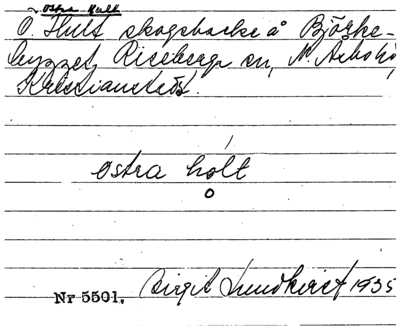 ~ Östra Hult
Ö. Hult skogsbacke å Björke-
bygget, Riseberga sn, N. Åsbo hd,
Kristianstads l.
ostra hólt
o
Nr 5501. Birgit Lundkvist 1935